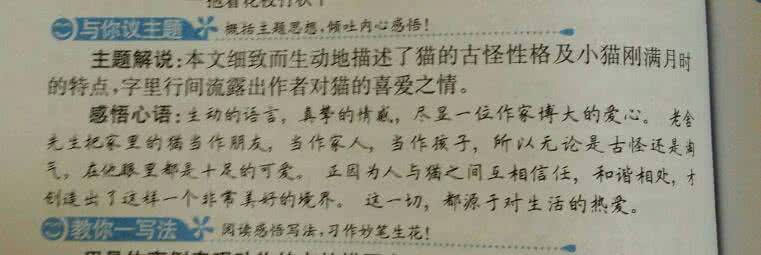 抱着花枝打秋千
与你议主题 概括主题思想,倾吐内心感悟!
主题解说:本文细致而生动地描述了猫的古怪性格及小猫刚满月时
的特点,字里行间流露出作者对猫的喜爱之情。
感悟心语:生动的语言,真挚的情感,尽显一位作家博大的爱心。老舍
先生把家里的猫当作朋友,当作家人,当作孩子,所以无论是古怪还是淘
气,在他眼里都是十足的可爱。正因为人与猫之间互相信任,和谐相处,才
创造出了这样一个非常美好的境界。这一切,都源于对生活的热爱。
教你一写法 阅读感悟写法,习作妙笔生花!